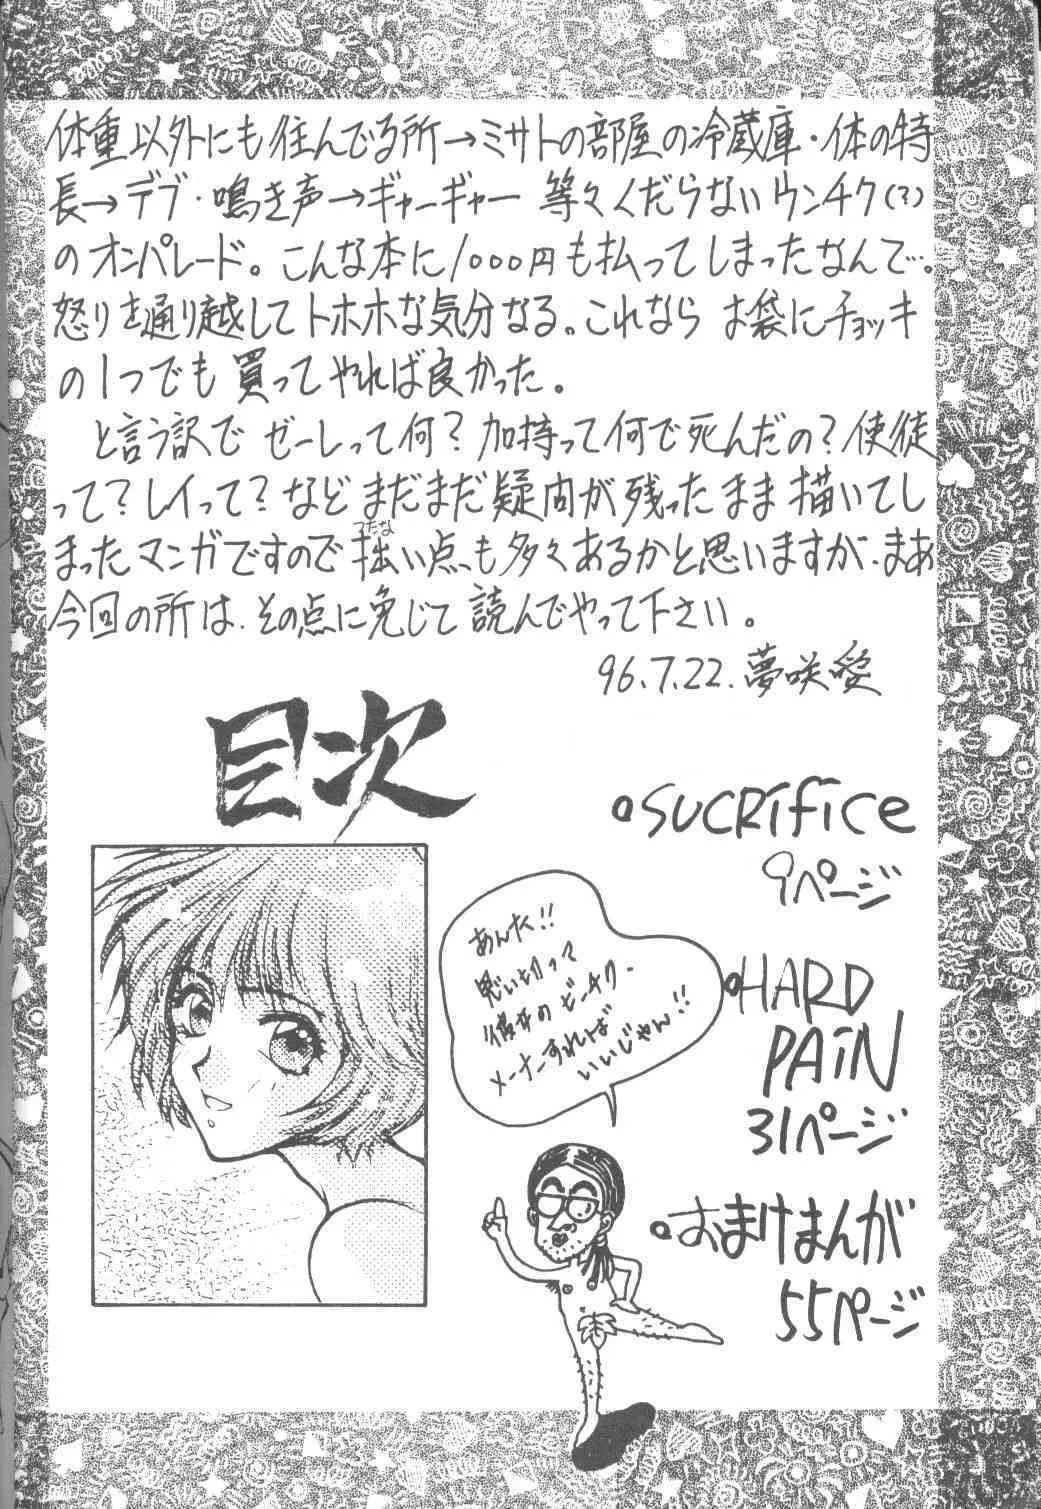 体重以外にも住んでる所→ミサトの部屋の冷蔵庫・体の特
長→デブ・鳴き声→ギャーギャー 等々くだらないウンチク(?)
のオンパレード。こんな本に1000円も払ってしまったなんて…。
怒りを通り越してトホホな気分なる。これなら お袋にチョッキ
の1つでも買ってやれば良かった。
と言う訳で ゼーレって何?加持って何で死んだの?使徒
って?レイって?などまだまだ疑問が残ったまま描いてし
まったマンガですので拙い点も多々あるかと思いますが、まあ
つたな
今回の所は、その点に免じて読んでやって下さい。
96.7.22.夢咲愛
目次
SUCRifice
9ページ
HARD
PAiN
31ページ
おまけまんが
55ページ
あんた!!
思い切って
メーナーすれば
いいじゃん!!